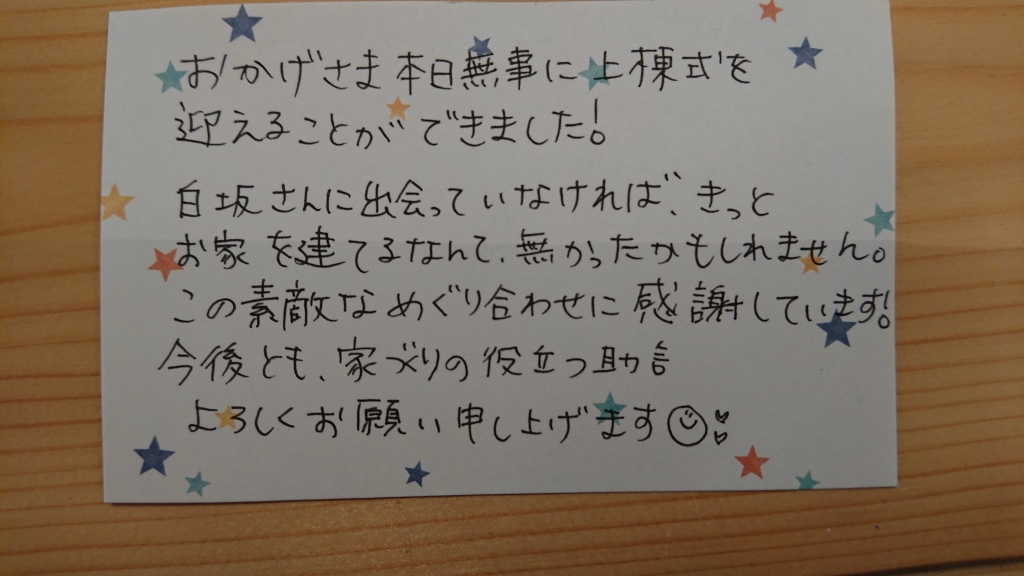 おかげさま本日無事に上棟式を
迎えることができました!
白坂さんに出会っていなければ、きっと
お家を建てるなんて、無かったかもしれません。
この素敵なめぐり合わせに感謝しています!
今後とも、家づりの役立つ助言
よろしくお願い申し上げます